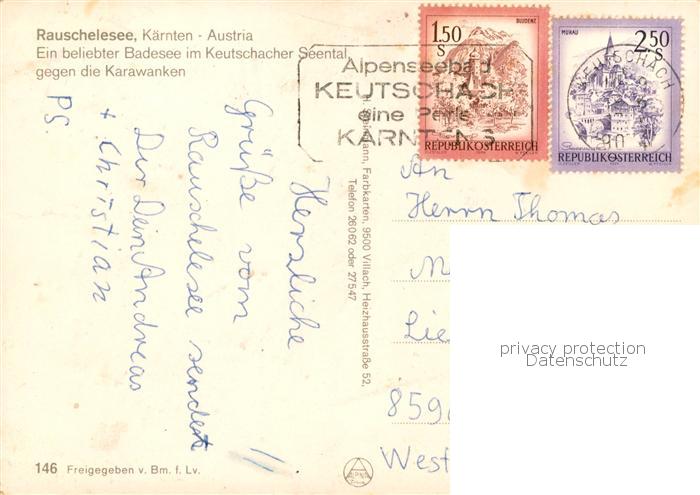 Rauschelesee, Kärnten - Austria
Ein beliebter Badesee im Keutschacher Seental,
gegen die Karawanken
BLUDENZ
1.50
S
REPUBLIK ÖSTERREICH
MURAU
2.50
S
REPUBLIK ÖSTERREICH
Alpenseebad
KEUTSCHACH
eine Perle
KÄRNTENS
KEUTSCHACH
Herzliche
Grüße vom
Rauschelesee sendet
Dir Dein Andreas
+ Christian
PS.
!!
mann, Farbkarten, 9500 Villach, Heizhausstraße 52,
Telefon 26062 oder 27547
An
Herrn Thomas
M
Lie
859
West
privacy protection
Datenschutz
146 Freigegeben v. Bm. f. Lv.